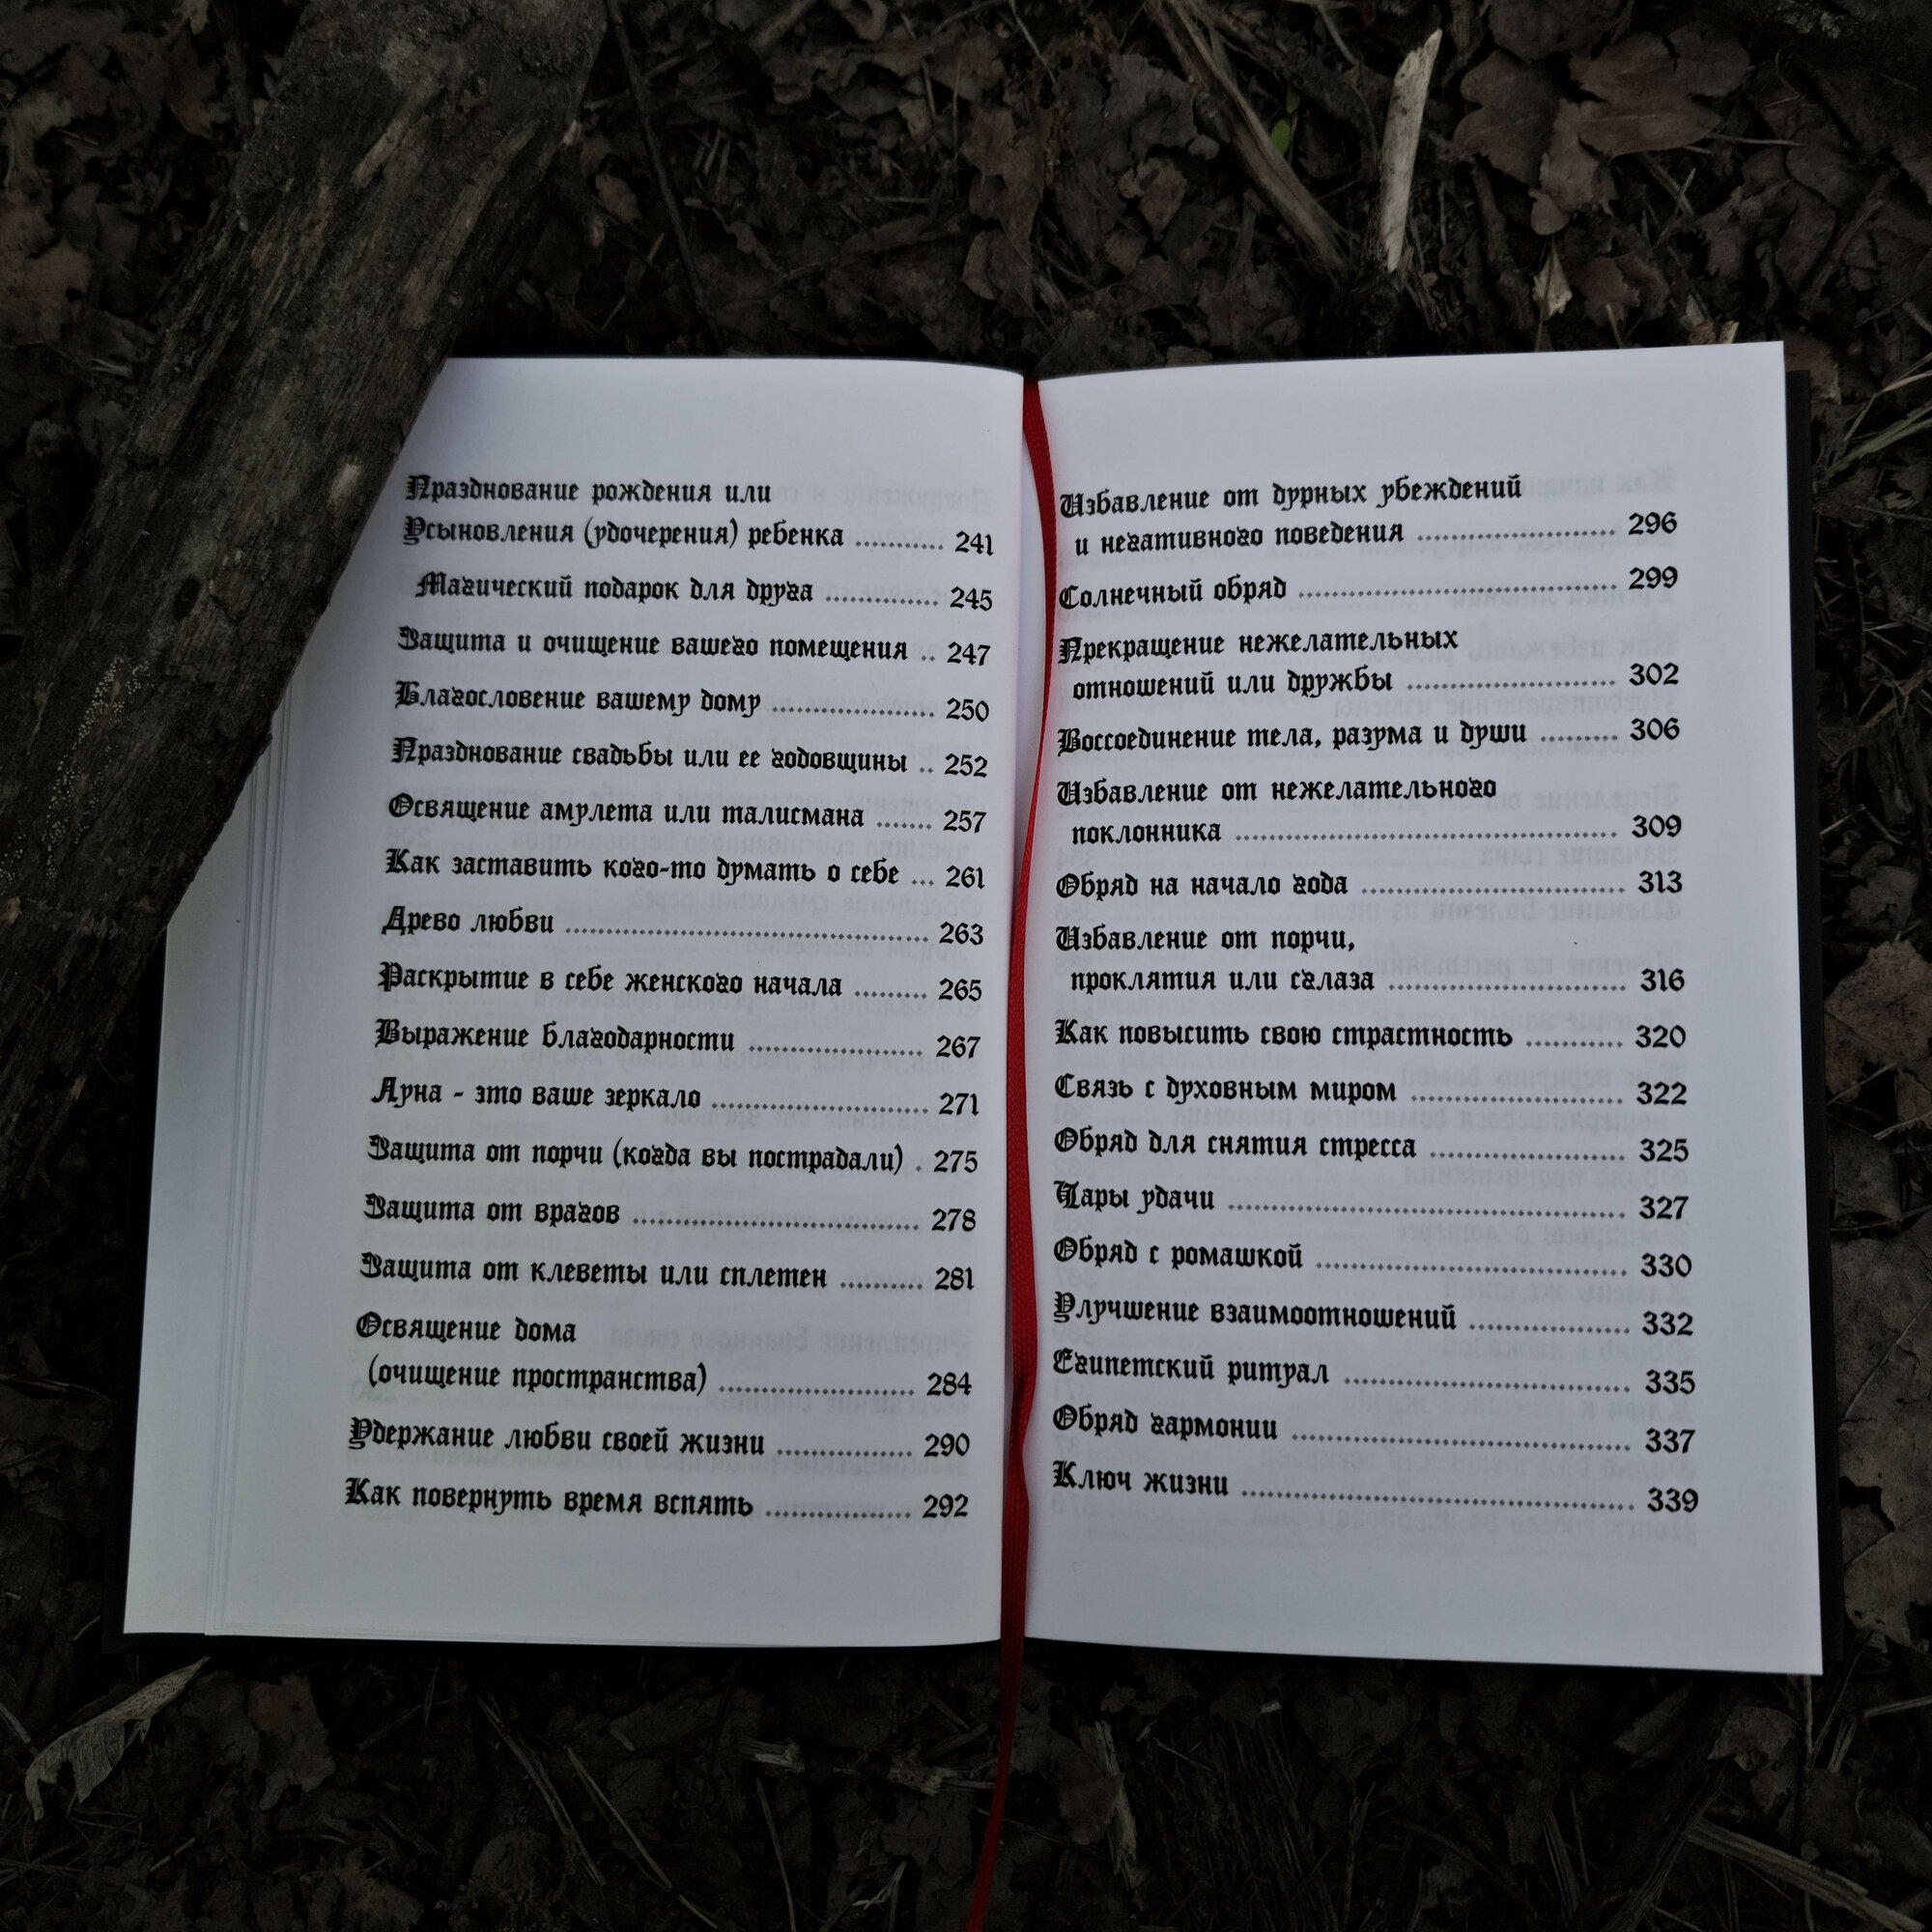 Празднование рождения или
Усыновления (удочерения) ребенка ........... 241
Магический подарок для друга .............. 245
Защита и очищение вашего помещения .. 247
Благословение вашему дому .................... 250
Празднование свадьбы или ее годовщины .. 252
Освящение амулета или талисмана ....... 257
Как заставить кого-то думать о себе ... 261
Древо любви ............................................. 263
Раскрытие в себе женского начала ......... 265
Выражение благодарности ..................... 267
Луна - это ваше зеркало ........................... 271
Защита от порчи (когда вы пострадали) . 275
Защита от врагов ................................... 278
Защита от клеветы или сплетен .......... 281
Освящение дома
(очищение пространства) ........................ 284
Удержание любви своей жизни ................. 290
Как повернуть время вспять .................. 292
Избавление от дурных убеждений
и негативного поведения ........................ 296
Солнечный обряд ....................................... 299
Прекращение нежелательных
отношений или дружбы ......................... 302
Воссоединение тела, разума и души ......... 306
Избавление от нежелательного
поклонника .............................................. 309
Обряд на начало года ................................ 313
Избавление от порчи,
проклятия или сглаза ............................. 316
Как повысить свою страстность ............ 320
Связь с духовным миром .......................... 322
Обряд для снятия стресса ........................ 325
Чары удачи ................................................ 327
Обряд с ромашкой ...................................... 330
Улучшение взаимоотношений .................... 332
Египетский ритуал ................................... 335
Обряд гармонии ......................................... 337
Ключ жизни ............................................... 339